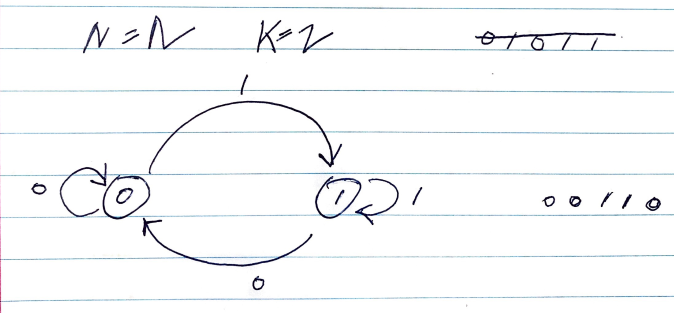 N = N K=2 01011
1
0 0 1 1 00110
0